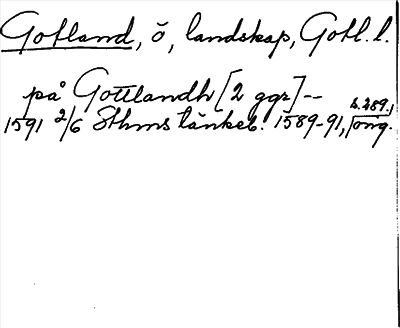 Gotland, ö, landskap, Gotl. l.
på Gottlandh [2 ggr] --
s. 289.
1591 2/6 Sthms tänkeb. 1589-91, orig.